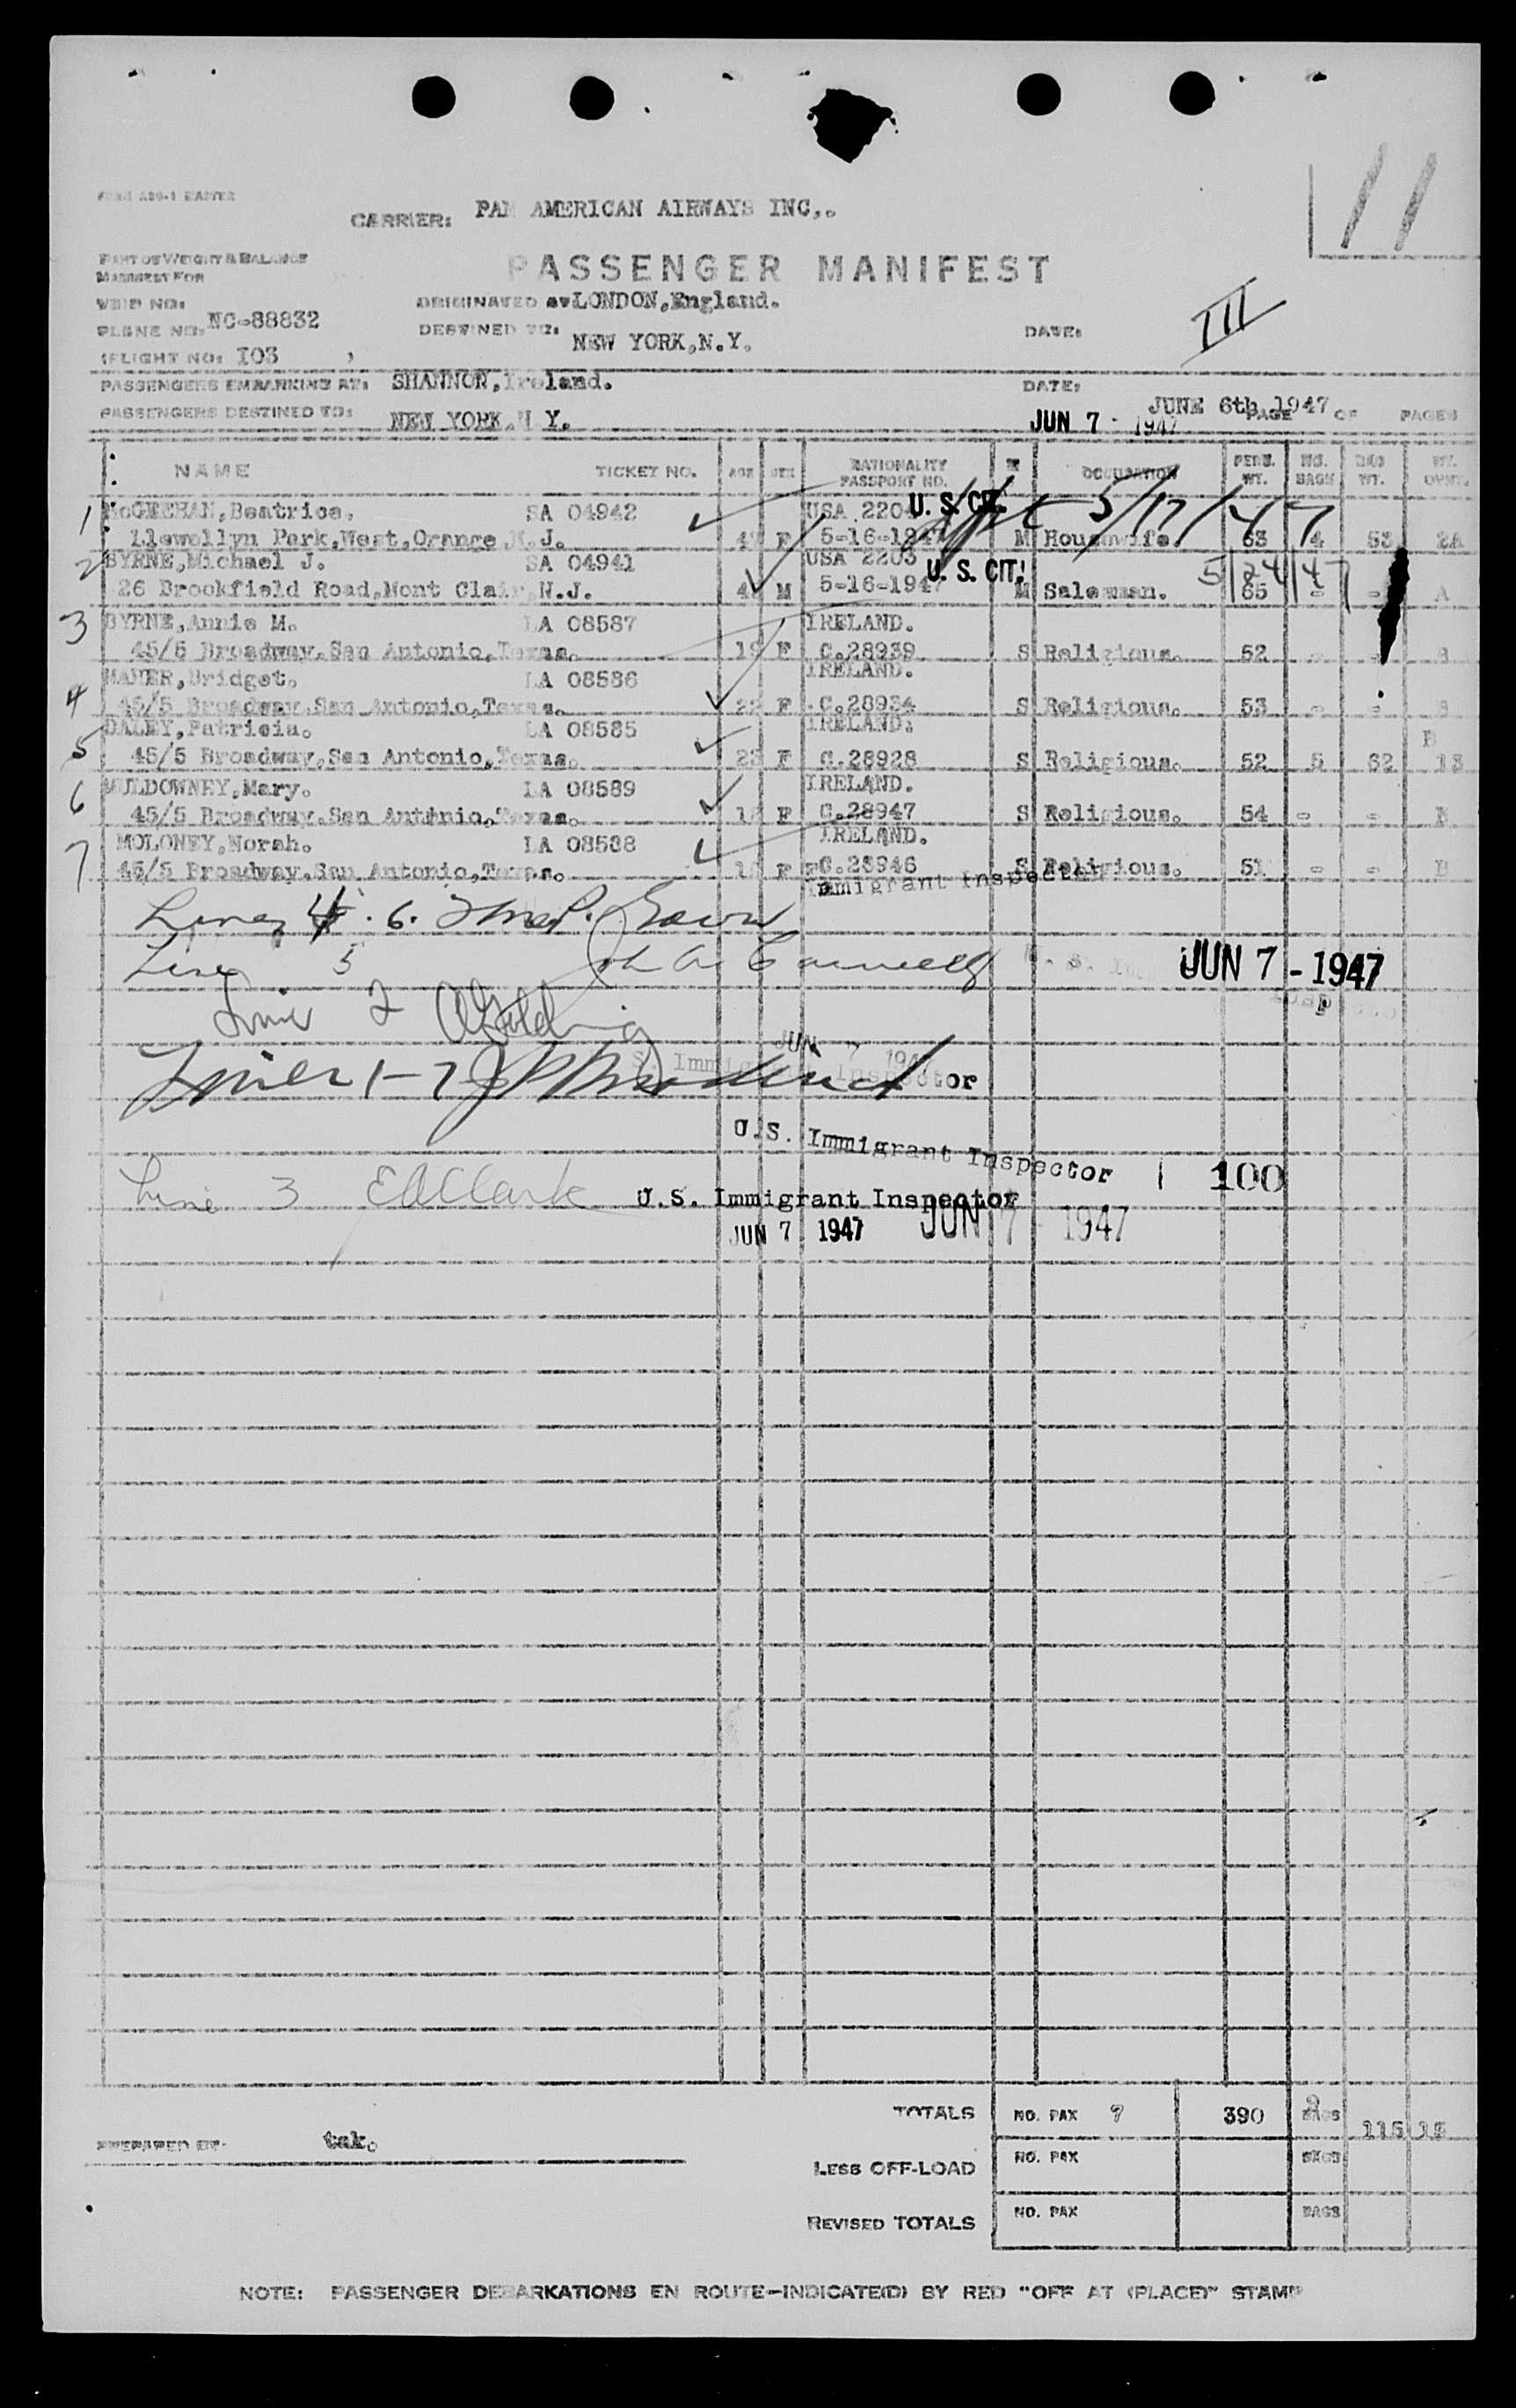 FORM
CARRIER: PAN AMERICAN AIRWAYS INC,.
11
PART OF WEIGHT & BALANCE
MANIFEST FOR
PASSENGER MANIFEST
TRIP NO:
ORIGINATED AT LONDON,England.
PLANE NO. NC-88832
DESTINED TO: NEW YORK,N.Y.
DATE:
III
(FLIGHT NO: I03 )
PASSENGERS EMBARKING AT: SHANNON,Ireland.
DATE: JUNE 6th 1947
PASSENGERS DESTINED TO: NEW YORK,N Y.
JUN 7 - 1947
PAGE OF PAGES
NAME TICKET NO. AGE SEX NATIONALITY PASSPORT NO. OCCUPATION PERS. WT. NO. BAGS BAG WT.
1 McGHEEHAN,Beatrice. SA 04942 USA 2204 U. S. CIT. 5/17/47
Llewellyn Park,West,Orange,N.J. F 5-16-1947 M Housewife. 63 4 53 2A
2 BYRNE,Michael J. SA 04941 USA 2203 U. S. CIT. 5/24/47
26 Brookfield Road,Mont Clair,N.J. M 5-16-1947 M Salesman. 65 - - A
3 BYRNE,Annie M. LA 08587 IRELAND.
45/5 Broadway.San Antonio,Texas. 19 F C.28939 S Religious. 52 - -
4 MAHER,Bridget. LA 08586 IRELAND.
45/5 Broadway.San Antonio,Texas. 22 F C.28934 S Religious. 53 - -
5 DALEY,Patricia. LA 08585 IRELAND. B
45/5 Broadway,San Antonio,Texas. 23 F C.28928 S Religious. 52 5 62 13
6 MULDOWNEY,Mary. LA 08589 IRELAND.
45/5 Broadway.San Antonio,Texas. F C.28947 S Religious. 54 - - B
7 MOLONEY,Norah. LA 08588 IRELAND.
45/5 Broadway.San Antonio,Texas. F C.28946 S Religious. 51 - - B
Immigrant Inspector
Lines 4. 6.
Line 5
JUN 7 - 1947
Line 2
JUN 7 194
S. Immigrant Inspector
Lines 1-7
U.S. Immigrant Inspector
100
Line 3 EAClark U.S. Immigrant Inspector
JUN 7 1947 JUN 7 1947
TOTALS NO. PAX 7 390 9 BAGS 115 15
PREPARED BY- tak.
LESS OFF-LOAD NO. PAX BAGS
REVISED TOTALS NO. PAX BAGS
NOTE: PASSENGER DEBARKATIONS EN ROUTE-INDICATE(D) BY RED "OFF AT (PLACE)" STAMP